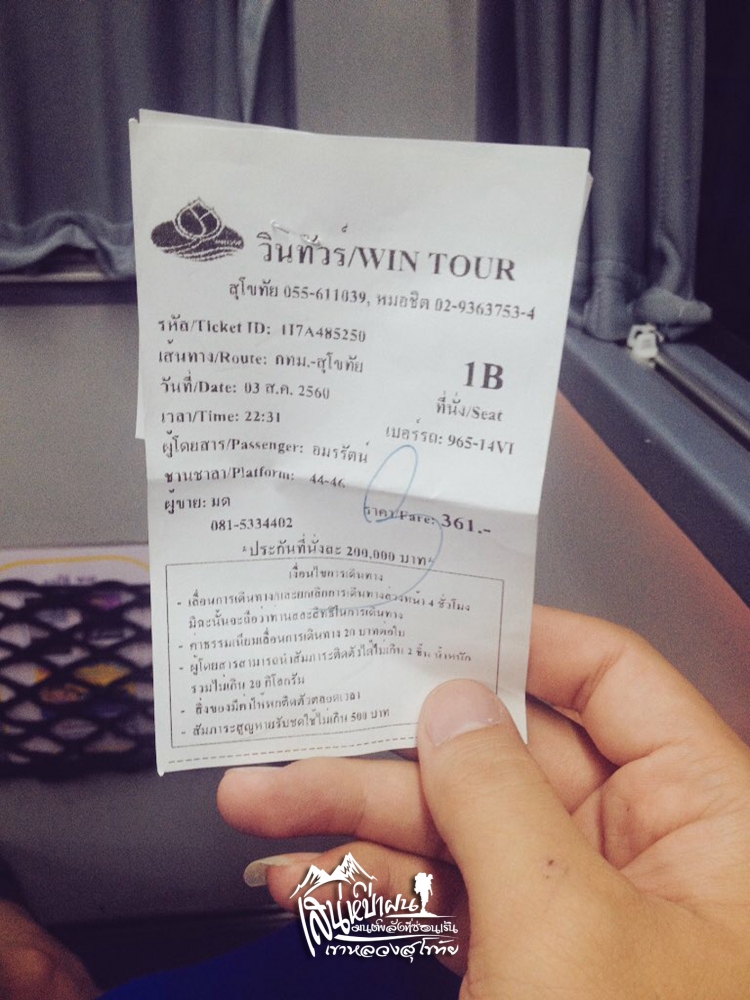 วินทัวร์/WIN TOUR
สุโขทัย 055-611039, หมอชิต 02-9363753-4
รหัส/Ticket ID: 117A485250
เส้นทาง/Route: กทม.-สุโขทัย
1B
วันที่/Date: 03 ส.ค. 2560
ที่นั่ง/Seat
เวลา/Time: 22:31
เบอร์รถ: 965-14VI
ผู้โดยสาร/Passenger: อมรรัตน์
ชานชาลา/Platform: 44-46
ราคา/Fare: 361.-
ผู้ขาย: มด
081-5334402
*ประกันที่นั่งละ 200,000 บาท*
เงื่อนไขการเดินทาง
- เลื่อนการเดินทาง/และยกเลิกการเดินทางล่วงหน้า 4 ชั่วโมง
มิฉะนั้นจะถือว่าท่านสละสิทธิ์ในการเดินทาง
- ค่าธรรมเนียมเลื่อนการเดินทาง 20 บาทต่อใบ
- ผู้โดยสารสามารถนำสัมภาระติดตัวได้ไม่เกิน 2 ชิ้น น้ำหนัก
รวมไม่เกิน 20 กิโลกรัม
- สิ่งของมีค่าให้พกติดตัวตลอดเวลา
- สัมภาระสูญหายรับชดใช้ไม่เกิน 500 บาท
เสน่ห์ป่าฝน
มนต์พลังที่ซ่อนเร้น
เขาหลวงสุโขทัย